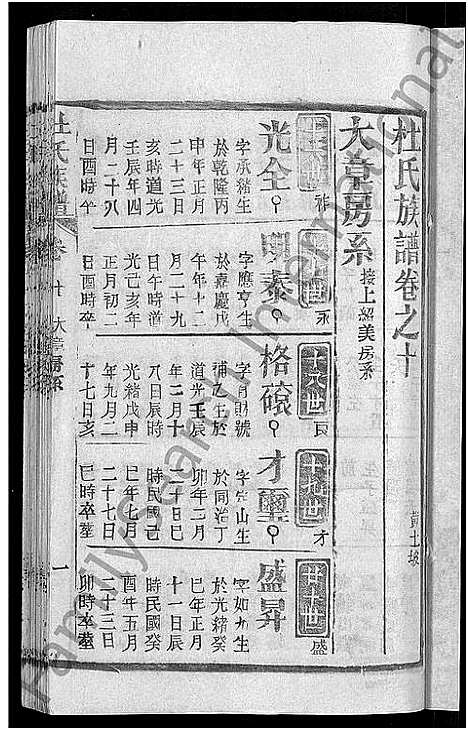 杜氏族譜卷之十
大章房系
接上紹美房系
光全
字承緒生
於乾隆丙
申年正月
二十三日
亥時道光
壬辰年四
月二十八
日酉時卒
明泰
永
字應亨生
於嘉慶戊
午年十二
月二十九
日午時道
光己亥年
正月初二
日酉時卒
十八世
良
格磙
字財號
補乙生於
道光壬辰
年二月十
八日辰時
光緒戊申
年九月二
十七日亥
才
才璽
字定山生
於同治丁
卯年二月
二十日巳
時民國己
巳年七月
二十七日
巳時卒葬
盛
盛昇
字如九生
於光緒癸
巳年正月
十一日辰
時民國癸
酉年五月
二十三日
卯時卒葬
杜氏族譜
卷十
大章房系
一
FamilySearch International